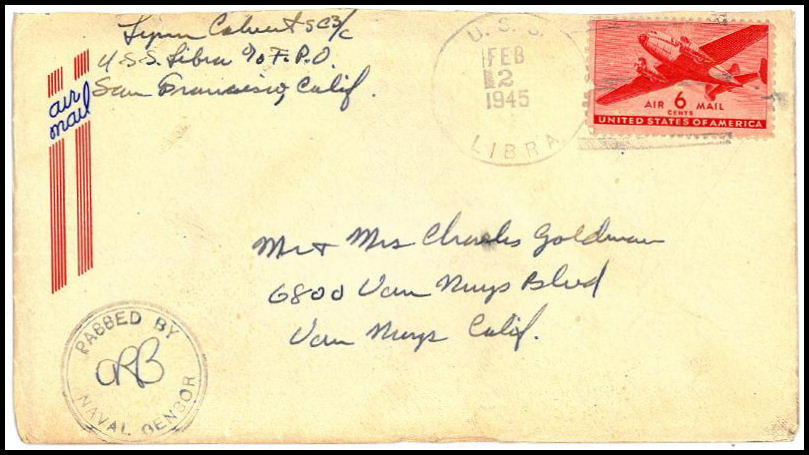 Calvert SC3/c
U.S.S. Libra c/o F.P.O.
San Francisco, Calif.
air
mail
U.S.S.
FEB
2
1945
LIBRA
AIR 6 MAIL
CENTS
UNITED STATES OF AMERICA
Mr + Mrs Charles Goldman
6800 Van Nuys Blvd
Van Nuys Calif.
PASSED BY
NAVAL CENSOR